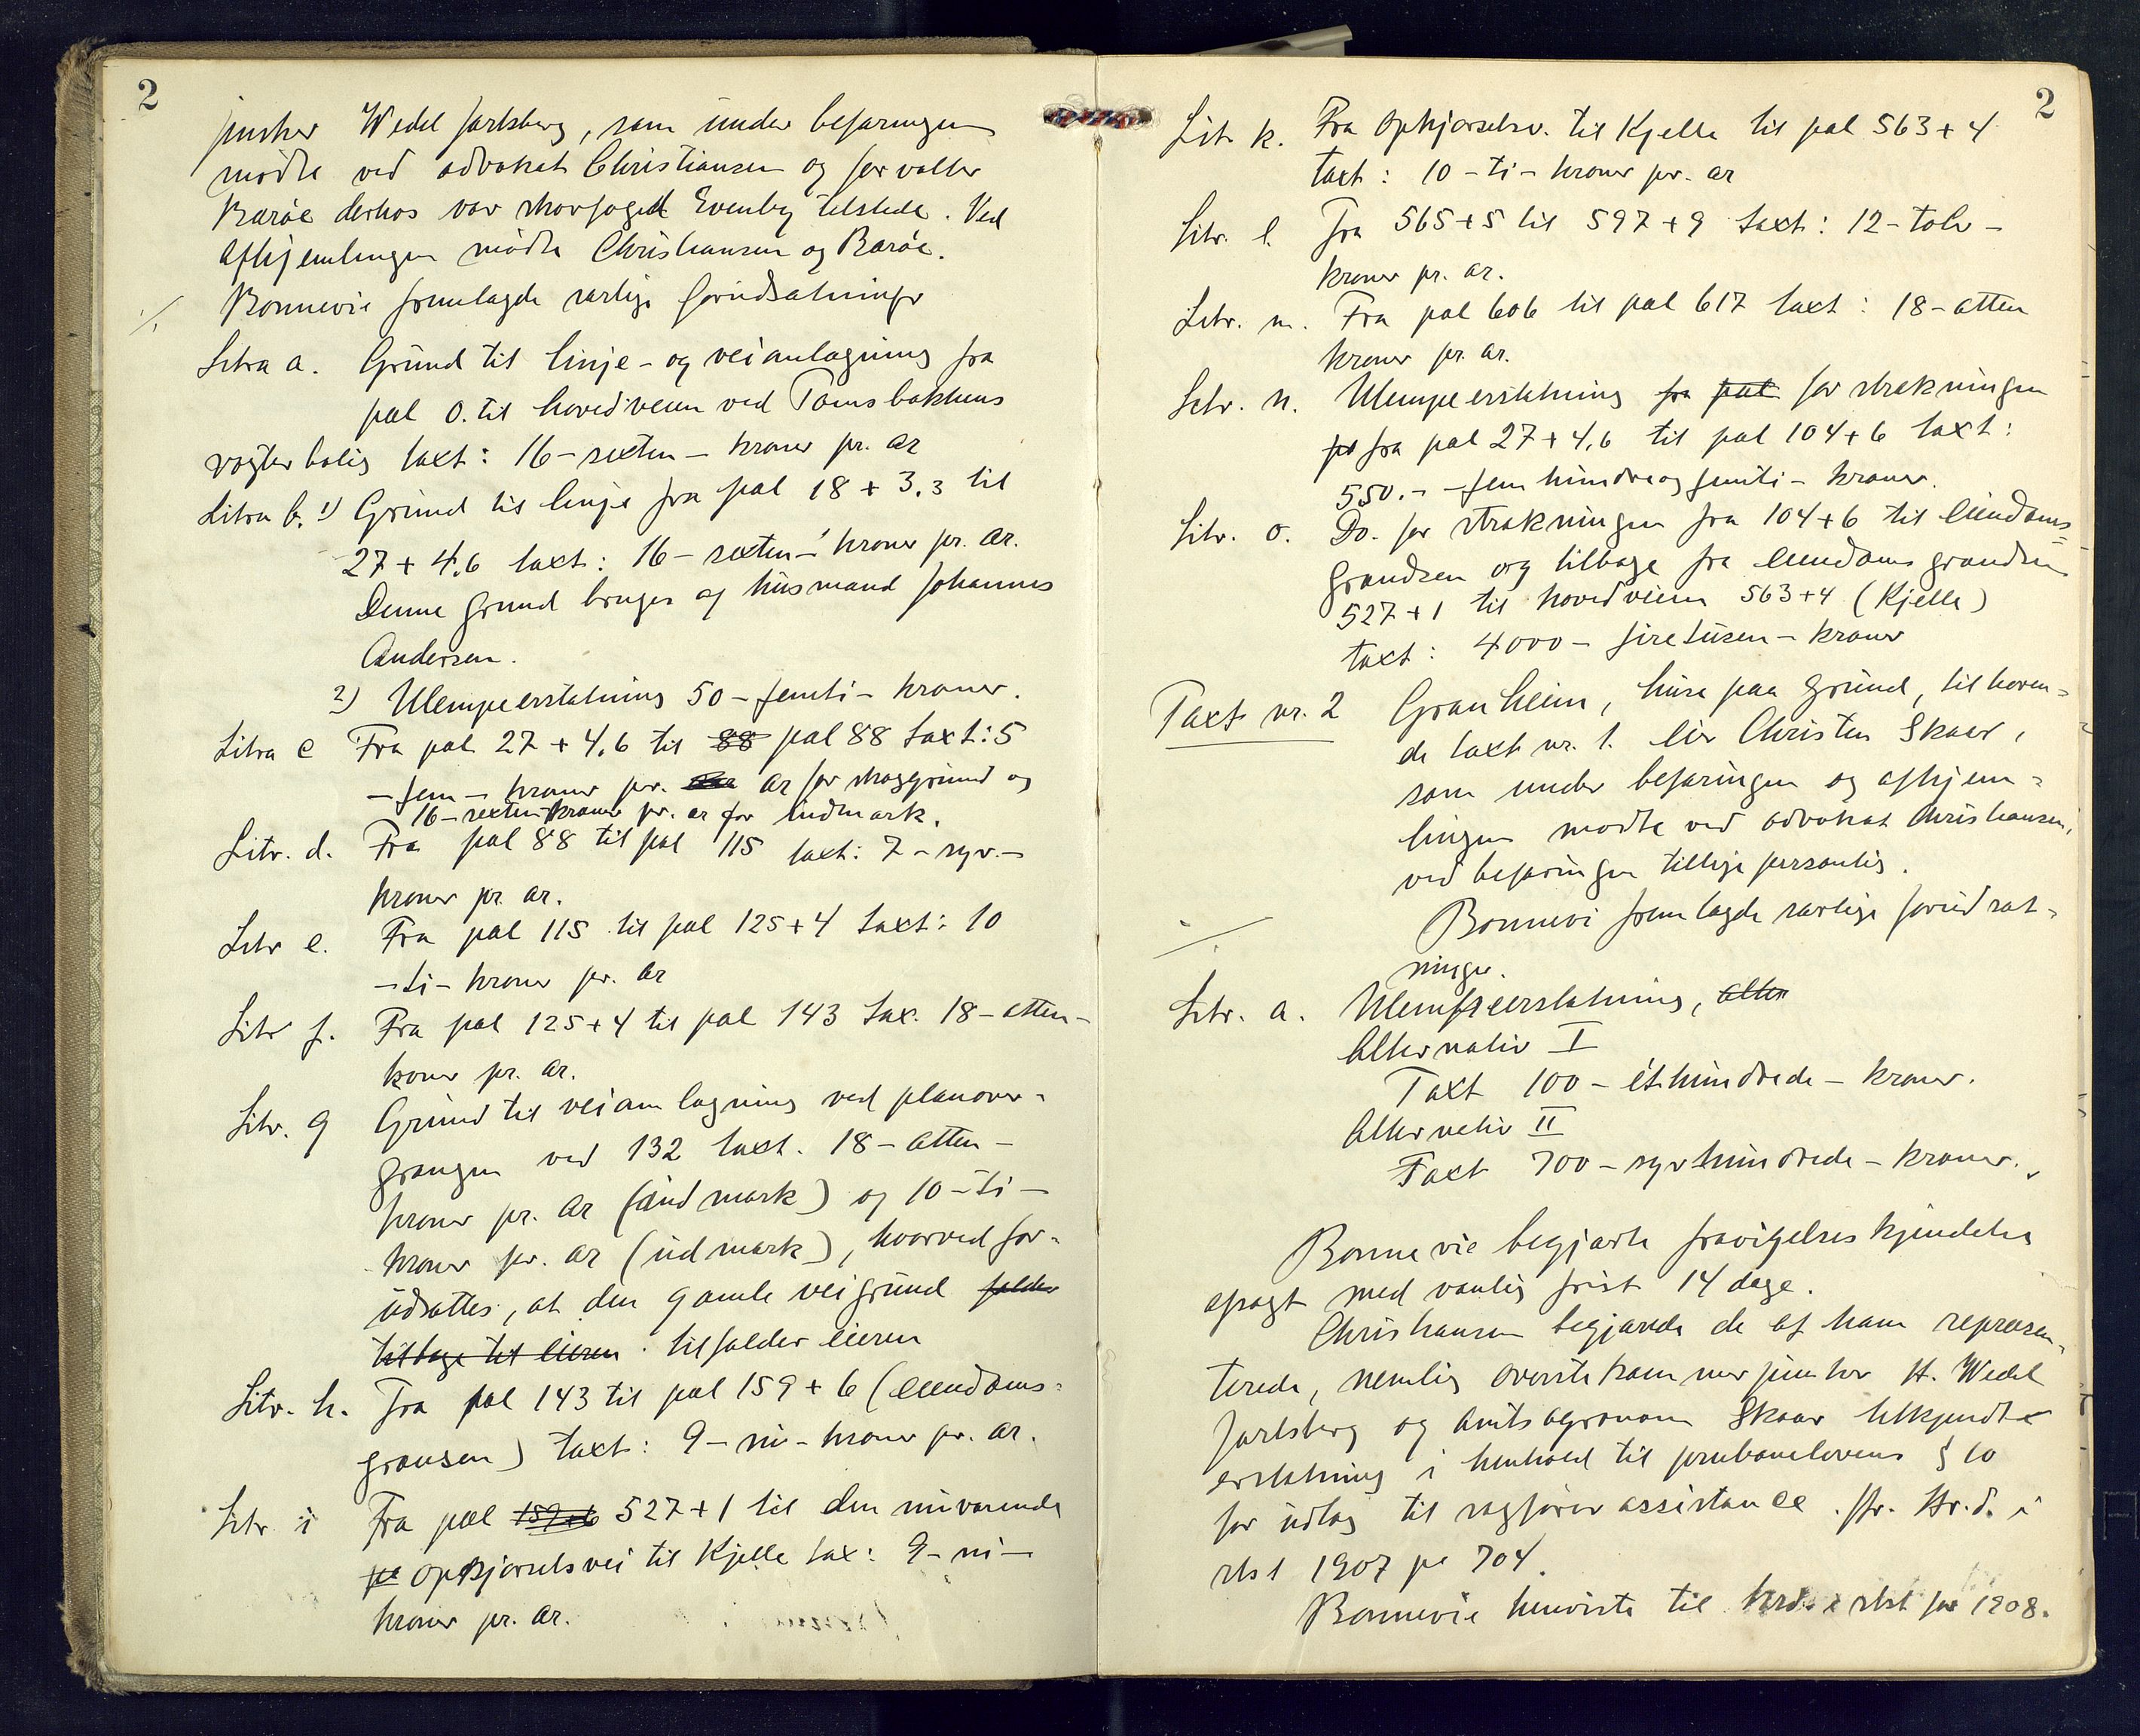 2
junker Wedel Jarlsberg, som under befaringen
mødte ved advokat Christiansen og forvalter
Barøe derhos var skovfoged Evenby tilstede. Ved
Afhjemlingen mødte Christiansen og Barøe.
./. Bonnevie fremlagde særlige forudsætninger
Litra a. Grund til linje- og veianlægning fra
pæl 0. til hovedveien ved Tomsbakkens
vogterbolig taxt: 16 - sexten - kroner pr. ar
Litra b. 1) Grund til linje fra pæl 18 + 3,3 til
27 + 4,6 taxt: 16 - sexten - kroner pr. ar.
Denne grund bruges af husmand Johannes
Andersen.
2) Ulempeerstatning 50 - femti - kroner.
Litra c Fra pæl 27 + 4,6 til 88 pæl 88 taxt: 5
- fem - kroner pr. ar for skoggrund og
16 - sexten kroner pr. ar for indmark.
Litr. d. Fra pæl 88 til pæl 115 taxt: 7 - syv. -
kroner pr ar.
Litr e. Fra pæl 115 til pæl 125 + 4 taxt: 10
- ti - kroner pr. ar
Litr f. Fra pæl 125 + 4 til pæl 143 tax. 18 - atten -
kroner pr. ar.
Litr. g Grund til veianlægning ved planover-
grangen ved 132 taxt. 18 - atten -
kroner pr. ar (indmark) og 10 - ti -
kroner pr. ar (udmark), hvorved for-
udsættes, at den gamle veigrund falder
tilbage til eieren tilfalder eieren
Litr. h. Fra pæl 143 til pæl 159 + 6 (eiendoms-
grænsen) taxt: 9 - ni - kroner pr. ar.
Litr i Fra pæl 159+6 527 + 1 til den nuværende
opkjørselsvei til Kjelle tax: 9 - ni -
kroner pr. ar.
2
Litr k. Fra Opkjørselsv. til Kjelle til pæl 563 + 4
taxt: 10 - ti - kroner pr. ar
Litr. l. Fra 565 + 5 til 597 + 9 taxt: 12 - tolv -
kroner pr. ar.
Litr. m. Fra pæl 606 til pæl 617 taxt: 18 - atten
kroner pr. ar.
Litr. n. Ulempeerstatning fra pæl for strækningen
fra pæl 27 + 4,6 til pæl 104 + 6 taxt:
550. - femhundreogfemti - kroner.
Litr. o. Do. for strækningen fra 104 + 6 til eiendoms-
grændsen og tilbage fra eiendomsgrændsen
527 + 1 til hovedveien 563 + 4 (Kjelle)
taxt: 4000 - firetusen - kroner
Taxt nr. 2 Granheim, huse paa grund, tilhøren-
de taxt nr. 1. Eier Christen Skaar,
som under befaringen og afhjem-
lingen mødte ved advokat Christiansen,
ved befaringen tillige personlig.
./. Bonnevi fremlagde særlige forudsæt-
ninger.
Litr. a. Ulempeerstatning, alter
Alternativ I
Taxt 100 - ethundrede - kroner.
Alternativ II
Taxt 700 - syvhundrede - kroner.
Bonnevie begjærte fravigelseskjendelse
afsagt med vanlig frist 14 dage.
Christiansen begjærede de af ham repræsen-
terede, nemlig overstekammerjunker H. Wedel
Jarlsberg og Amtsagronom Skaar tilkjendt
erstatning i henhold til jernbanelovens § 10
for udlæg til sagførerassistance. Jfr. Hr. d. i
rtst 1907 pe 704.
Bonnevie henviste til hrd. i rtst for 1908.